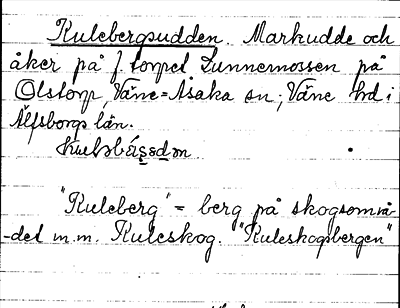 Kulebergsudden. Markudde och
åker på f. torpet Sunnermossen på
Olstorp, Väne=Åsaka sn; Väne hd i
Älfsborgs län.
"Kuleberg" = berg på skogsområ-
-det m.m. Kuleskog. "Kuleskogsbergen"